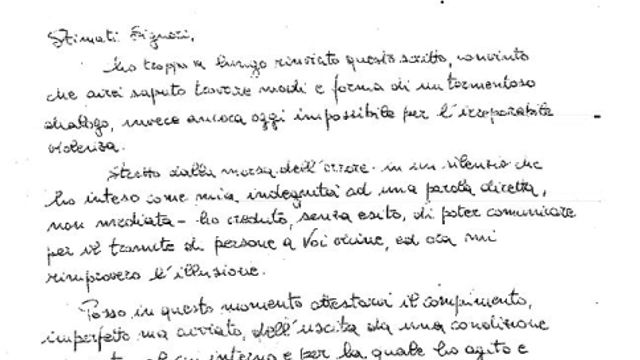 Stimati Signori,
ho troppo a lungo rinviato questo scritto, convinto
che avrei saputo trovare modi e forma di un tormentoso
dialogo, invece ancora oggi impossibile per l'irreparabile
violenza.
Stretto dalla morsa dell'orrore - in un silenzio che
ho inteso come mia indegnità ad una parola diretta,
non mediata - ho creduto, senza esito, di poter comunicare
per il tramite di persone a Voi vicine, ed ora mi
rimprovero l'illusione.
Posso in questo momento attestarvi il compimento,
imperfetto ma avviato, dell'uscita da una condizione
interno e per la quale ho agito e